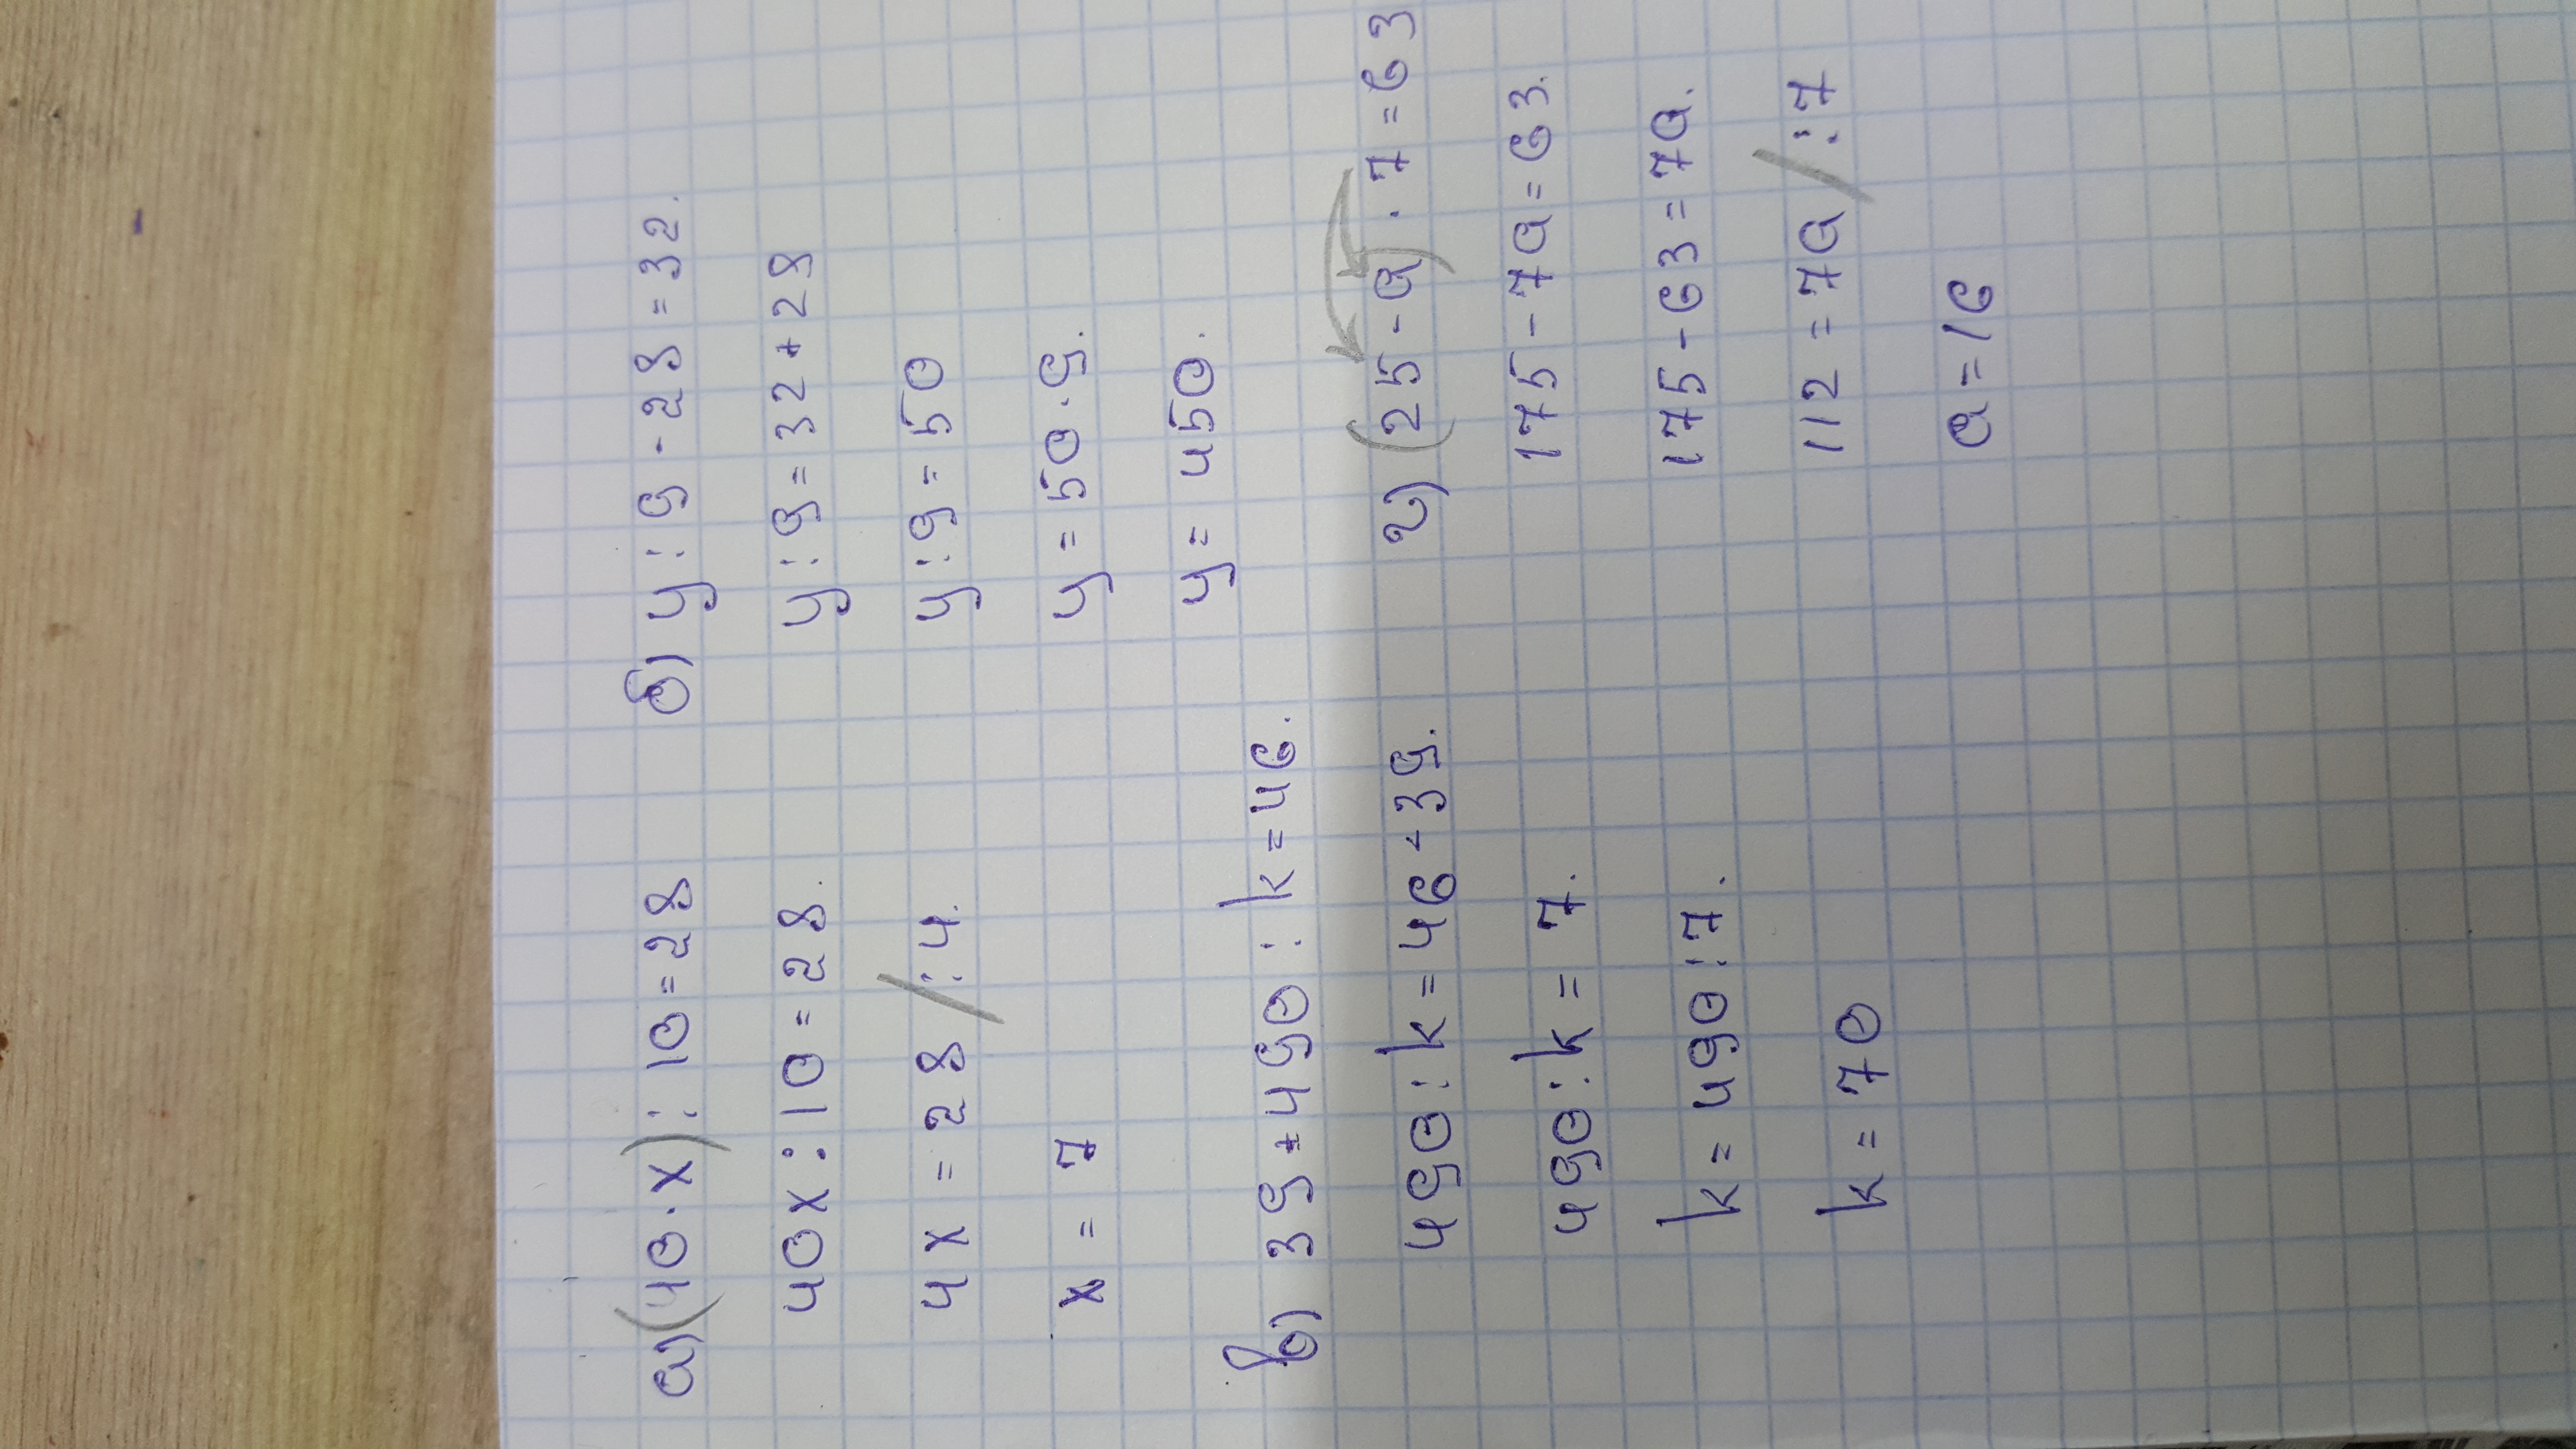 а) (40·x) : 10 = 28
40x : 10 = 28.
4x = 28 / :4.
x = 7
б) y : 9 - 28 = 32.
y : 9 = 32 + 28
y : 9 = 50
y = 50·9.
y = 450.
в) 39 + 490 : k = 46.
490 : k = 46 - 39.
490 : k = 7.
k = 490 : 7.
k = 70
г) (25 - a) · 7 = 63
175 - 7a = 63.
175 - 63 = 7a.
112 = 7a / :7
a = 16